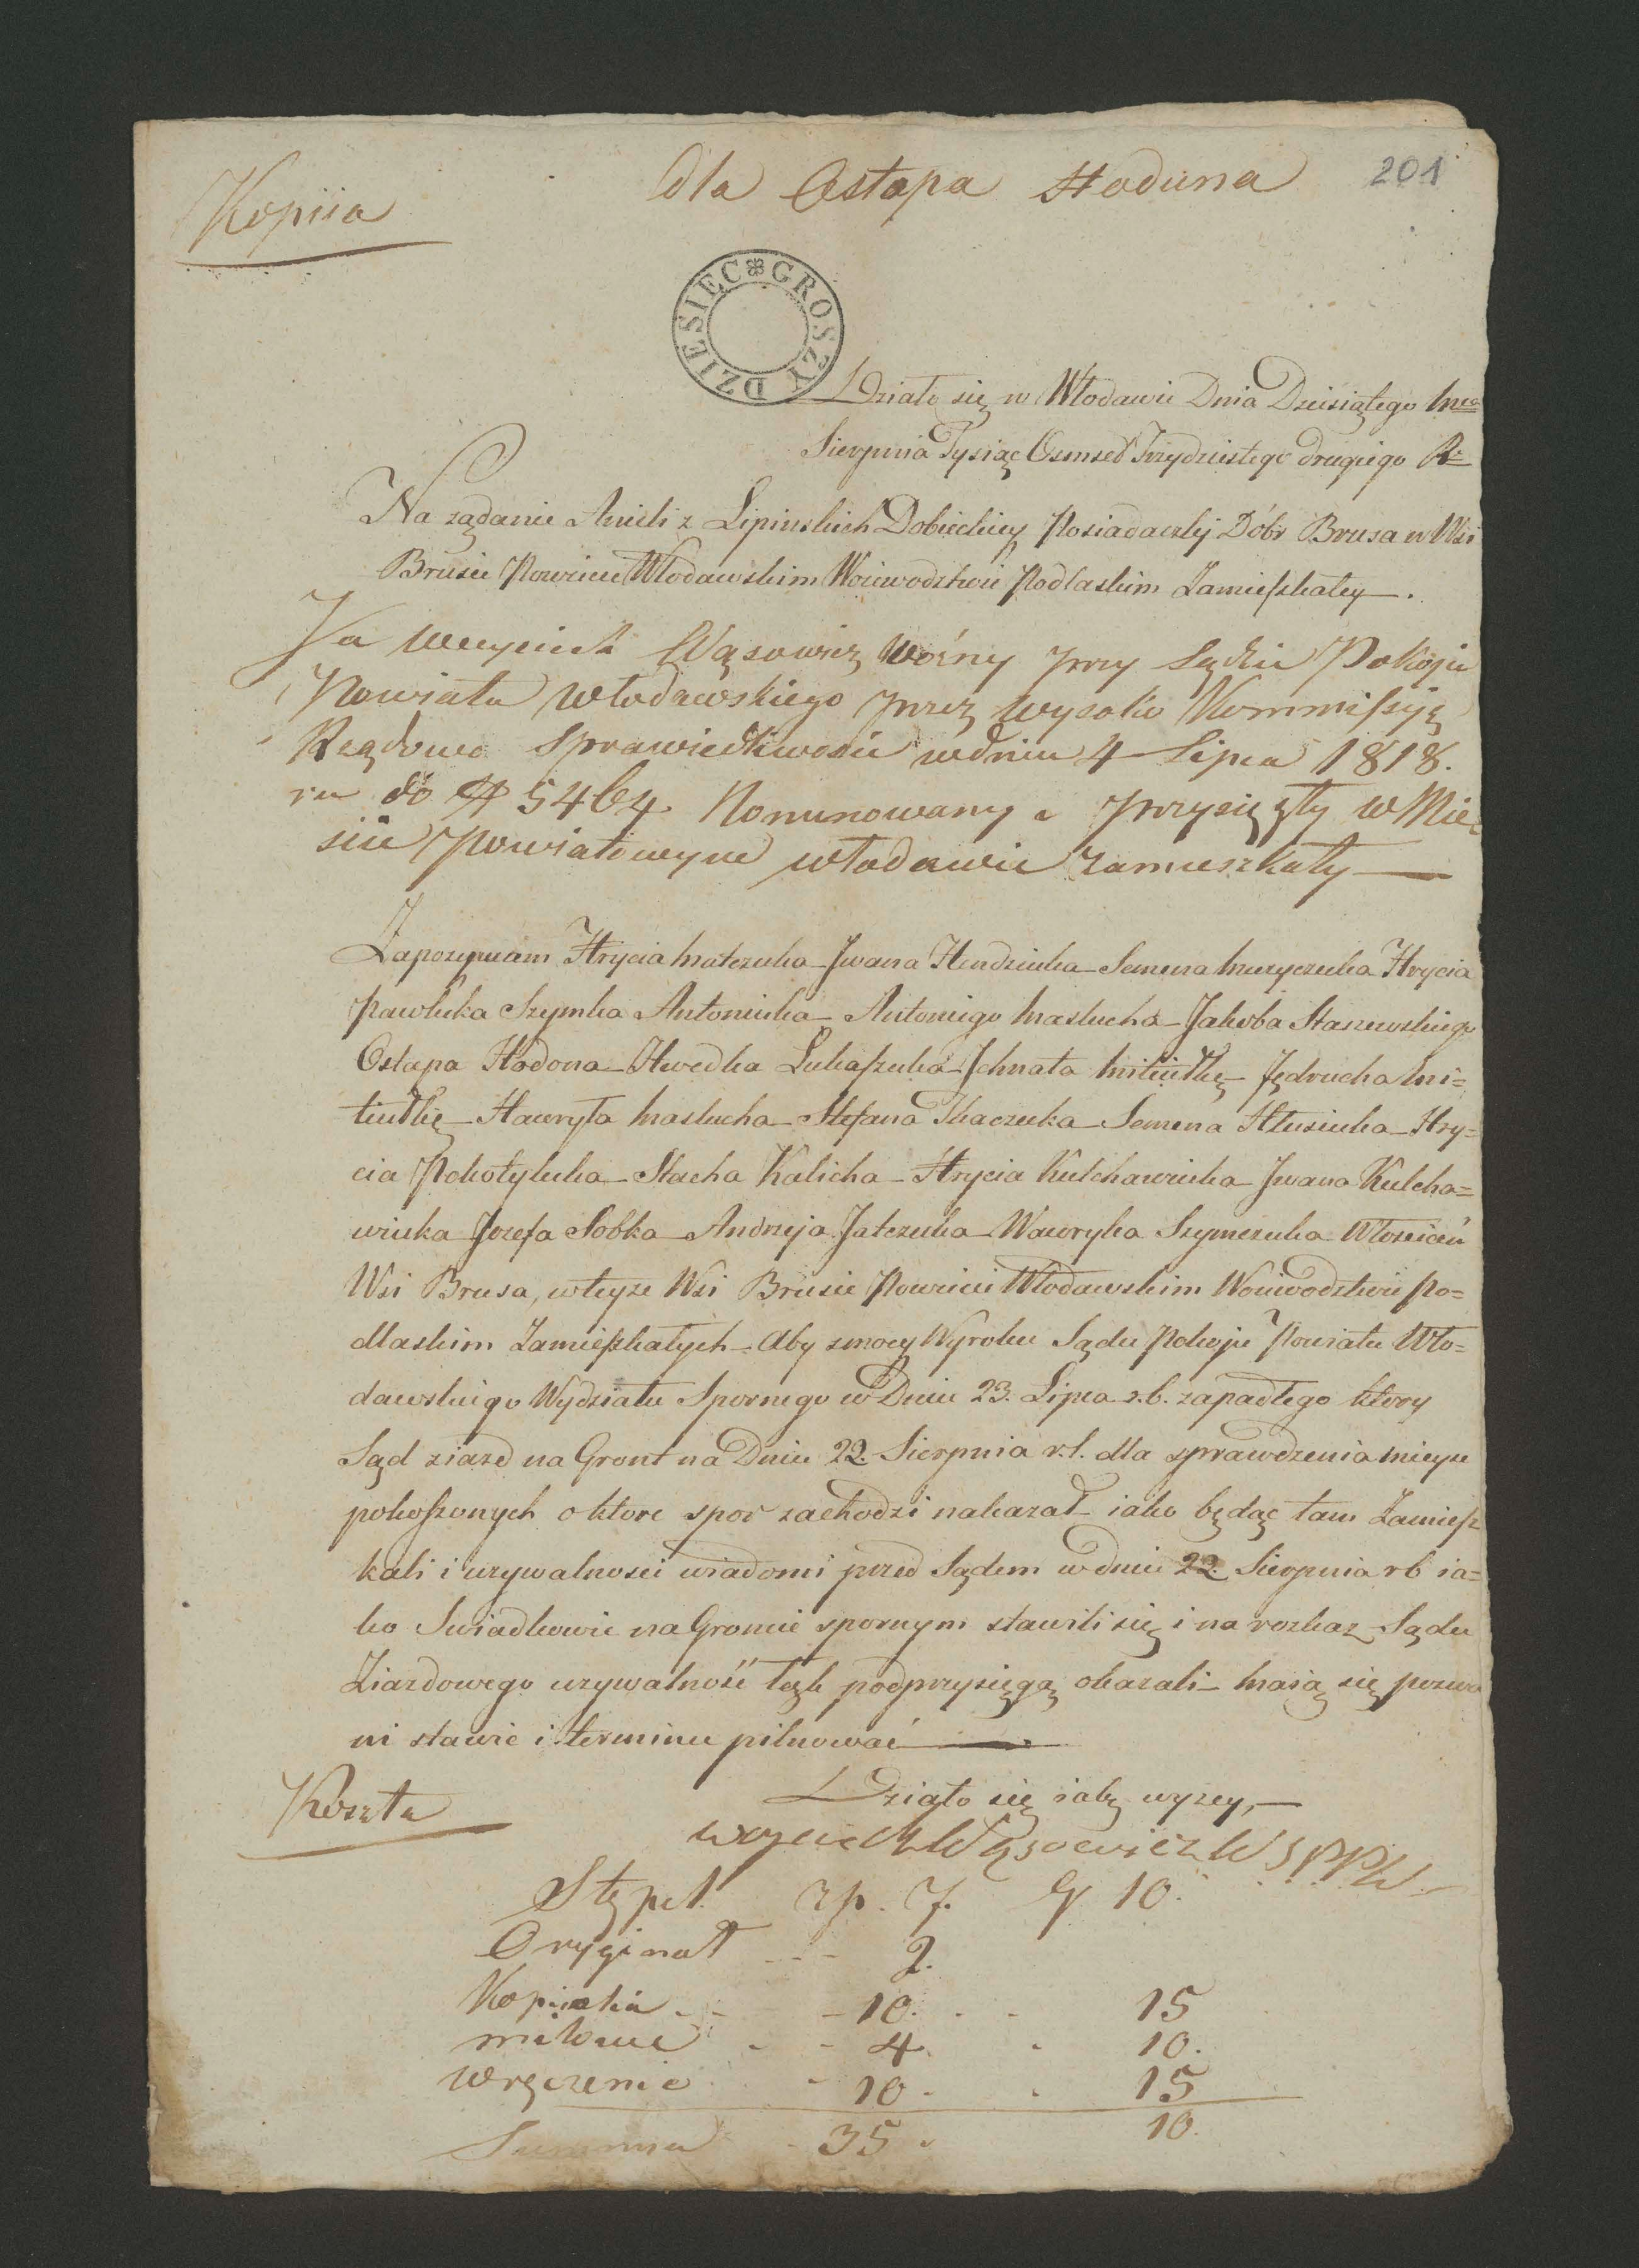 201
dla Ostapa Hoduna
Kopiia
DZIESIĘC GROSZY
Działo się w Włodawie Dnia Dziesiątego Mca
Sierpnia Tysiąc Osmset Trzydziestego drugiego R=
Na ządanie Anieli z Lipinskich Dobieckiey Posiadaczki Dóbr Brusa w Wsi
Brusie Powiecie Włodawskim Woiewodztwie Podlaskim Zamieszkałey.
Ja Woyciech Wąsowicz Woźny przy Sądzie Pokoju
Powiatu Włodawskiego przez wysoko Kommissyię
Rządową Sprawiedliwosci w dniu 4 Lipca 1818.
ru do N 5464 Nominowany i przysięgły w Mie=
scie Powiatowym Włodawie zamieszkały
Zapozywam Hrycia Matczuka Jwana Hendziuka Semena Muzyczuka Hrycia
Pawluka Szymka Antoniuka Antoniego Maslucha Jakoba Staszewskiego
Ostapa Hodona Hwedka Lukaszuka Jchnata Mitiutkę Jędrucha Mi=
tiutkę Hawryła Maslucha Stefana Tkaczuka Semena Hlusiuka Hry=
cia Pokotyluka Stacha Kalicha Hrycia Kulchawiuka Jwana Kulcha=
wiuka Jozefa Sobka Andrzeja Jatczuka Wawryka Szymczuka Włościan
Wsi Brusa, w teyze Wsi Brusie Powiecie Włodawskim Woiewodztwie Po=
dlaskim Zamieszkałych Aby z mocy Wyroku Sądu Pokoju Powiatu Wło=
dawskiego Wydziału Spornego w Dniu 23. Lipca r.b. zapadłego ktory
Sąd ziazd na Gront na Dniu 22. Sierpnia r.b. dla sprawdzenia mieysc
pokoszonych o ktore spor zachodzi nakazał iako będąc tam Zamiesz
kali i uzywalnosci wiadomi przed Sądem w dniu 22. Sierpnia rb ia=
ko Swiadkowie na Groncie spornym stawili się i na rozkaz Sądu
Ziazdowego uzywalność łąk pod przysięgą okazali maią się pozwa
ni stawic i terminu pilnować
Koszta
Działo się iak wyzey,
Woyciech Wąsowicz W S P P W
Stępel zp. 7. Gr 10.
Oryginał 2.
Kopiiakia 10. 15
milowe 4. 10.
Wręczenie 10. 15
Summa 35 10.